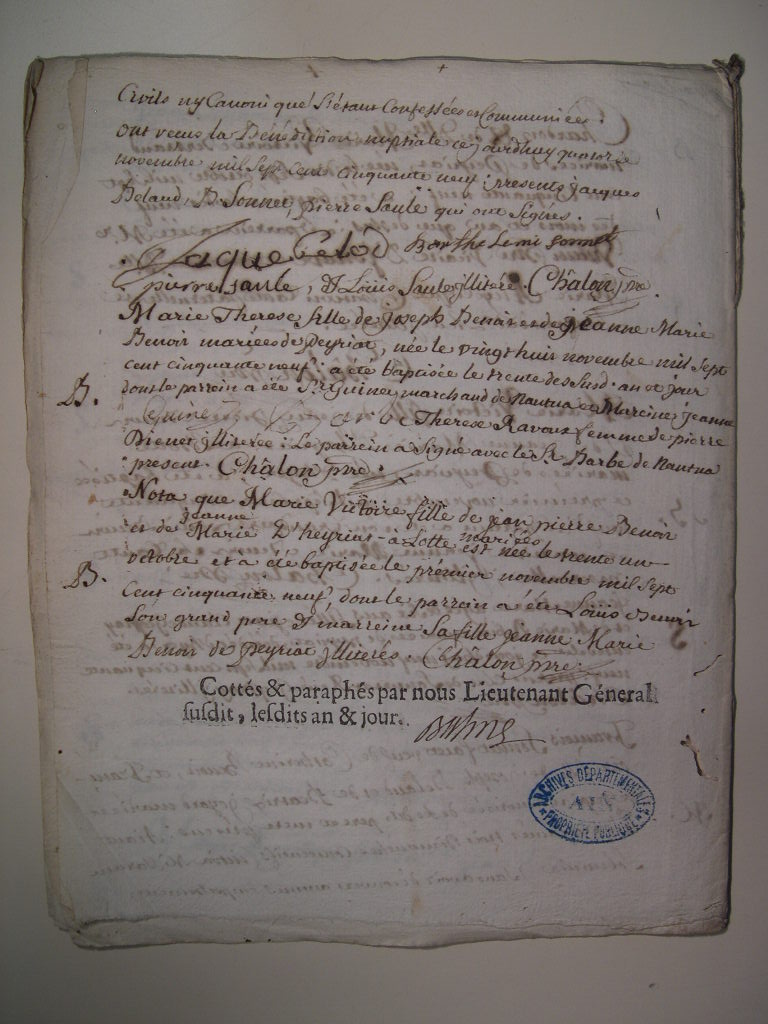 Civils ny Canoni que S'étant Confessées et Communiées.
ont recus la Bénédiction nuptiale ce jourdhuy quatorze
novembre mil Sept Cent cinquante neuf : presents jacques
Beland, B. Sonnet, pierre Saule qui ont Signés.
Jaque Barthelemi sonnet
pierre saule, & Louis Saule jllitéré. Châlon ptre.
Marie Therese fille de joseph Benoir et de jeanne Marie
Benoir mariées de Peyriat, née le vingt huit novembre mil Sept
Cent cinquante neuf : a été baptisée le trente des Susd. an et jour
B. dont le parrein a été Sr. Guinet marchand de Nantua et Mareine jeanne
Guinet Therese Ravoux femme de pierre
Bienet jlliterée : Le parrein a Signé avec le Sr. Barbe de Nantua
present. Châlon ptre.
Nota que Marie Victoire fille de jean pierre Benoir
jeanne mariées
et de Marie D'heyriat - à Lotte est née le trente un
octobre et à été baptisée le prémier novembre mil Sept
B. Cent cinquante neuf, dont le parrein a été Louis Benoir
Son grand pere & marreine Sa fille jeanne Marie
Benoir de Peyriat jlliterés. Châlon ptre.
Cottés & paraphés par nous Lieutenant Géneral
susdit, lesdits an & jour.
ARCHIVES DÉPARTEMENTALES
AIN
PROPRIÉTÉ PUBLIQUE